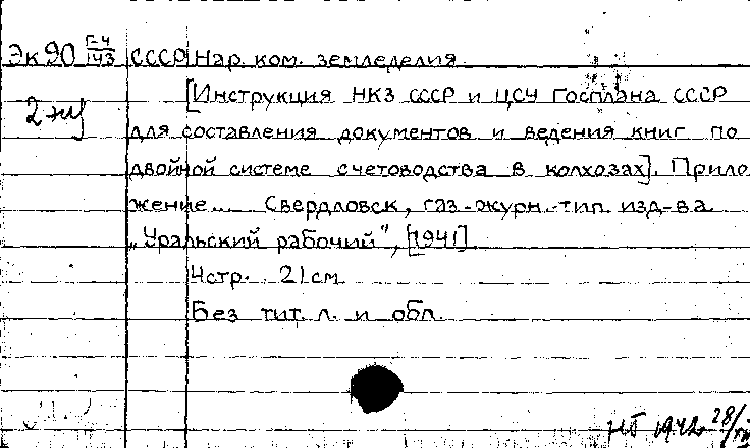 Эк90 Г-4/143 СССР Нар. ком. земледелия
2 экз
[Инструкция НКЗ СССР и ЦСУ Госплана СССР
для составления документов и ведения книг по
двойной системе счетоводства в колхозах]. Прило
жение... Свердловск, газ.-журн.-тип. изд-ва
„Уральский рабочий", [1941].
4стр. 21см
Без тит. л. и обл.
1942 28/